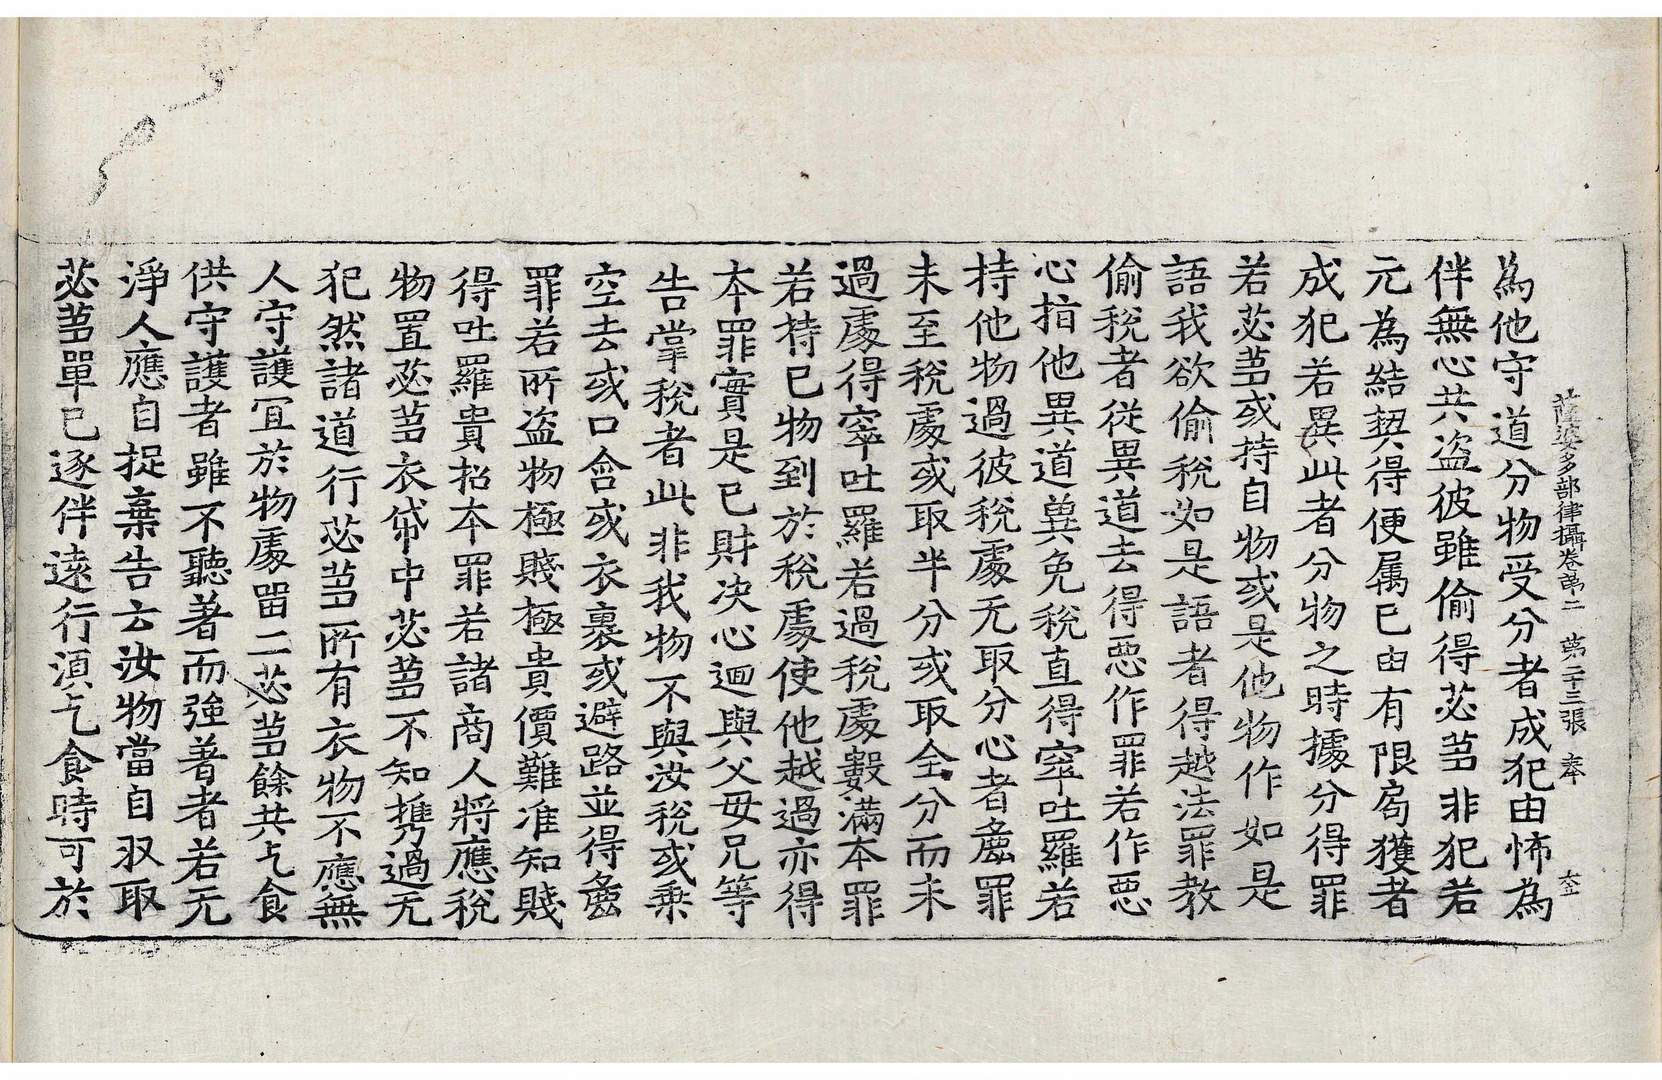 薩婆多部律攝卷第二　第二十三張　奉
為他守道分物受分者成犯由怖為
伴無心共盜彼雖偷得苾芻非犯若
元為結契得便屬己由有限局獲者
成犯若異此者分物之時據分得罪
若苾芻或持自物或是他物作如是
語我欲偷稅如是語者得越法罪教
偷稅者從異道去得惡作罪若作惡
心指他異道兾免稅直得窣吐羅若
持他物過彼稅處无取分心者麁罪
未至稅處或取半分或取全分而未
過處得窣吐羅若過稅處數滿本罪
若持己物到於稅處使他越過亦得
本罪實是己財決心迴與父母兄等
告掌稅者此非我物不與汝稅或乗
空去或口含或衣裹或避路並得麁
罪若所盜物極賤極貴價難准知賤
得吐羅貴招本罪若諸商人將應稅
物置苾芻衣帒中苾芻不知携過无
犯然諸道行苾芻所有衣物不應無
人守護冝於物處留二苾芻餘共乞食
供守護者雖不聽著而強著者若无
淨人應自捉棄告云汝物當自収取
苾芻單己逐伴遠行湏乞食時可於